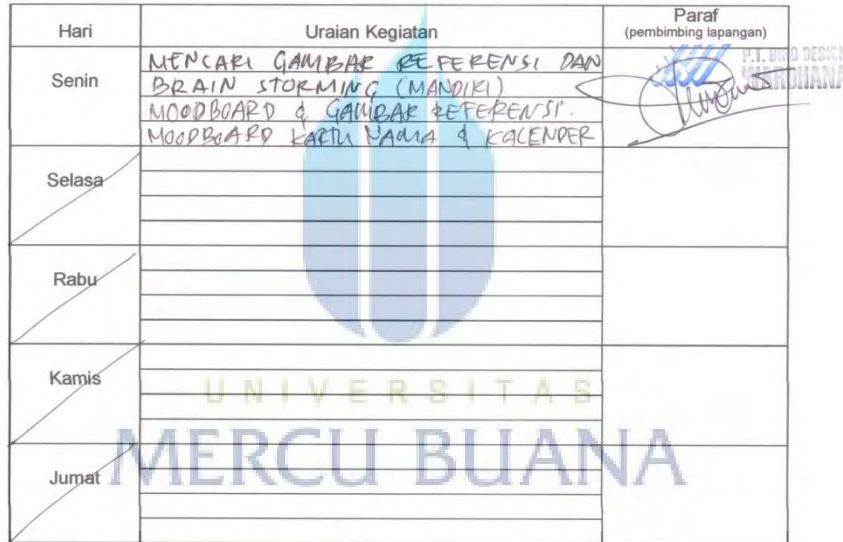 Hari Uraian Kegiatan Paraf
(pembimbing lapangan)
Senin
MENCARI GAMBAR REFERENSI DAN
BRAIN STORMING (MANDIRI)
MOODBOARD & GAMBAR REFERENSI.
MOODBOARD KARTU NAMA & KALENDER
P.T. BIRO DESIGN
WARDHANA
Selasa
Rabu
Kamis
UNIVERSITAS
MERCU BUANA
Jumat